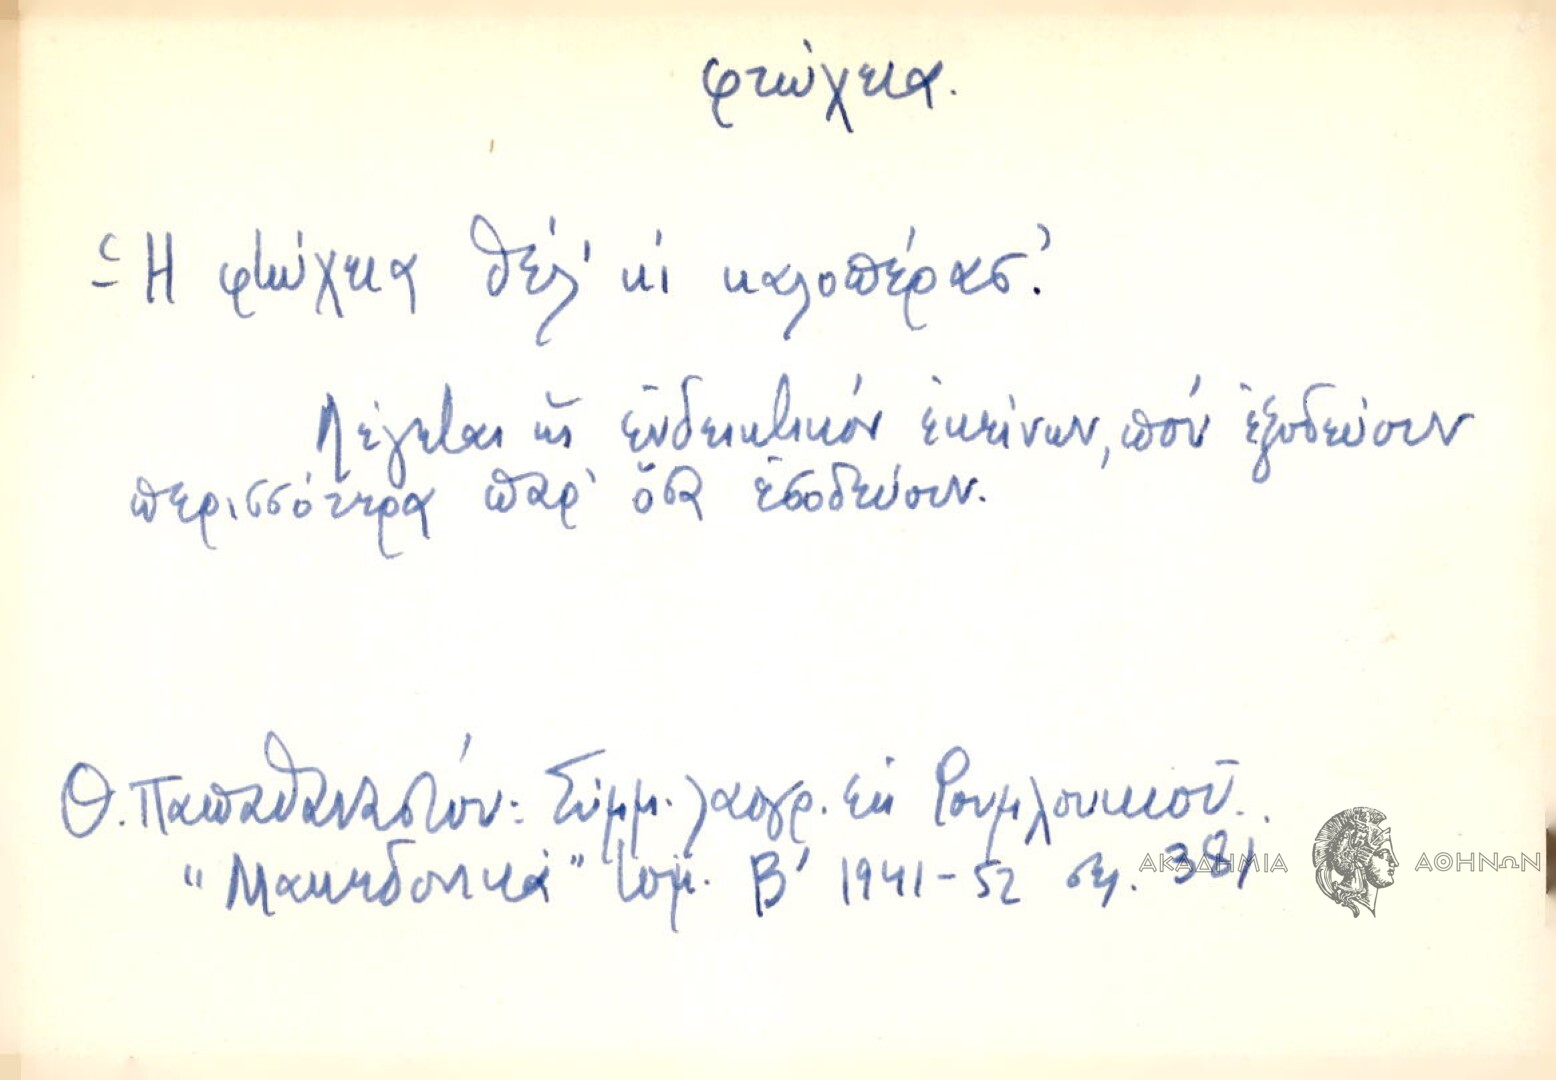 φτώχεια.
- Ἡ φτώχεια θέλ' κὶ καλοπέρασ'.
Λέγεται ὡς ἐνδεικτικόν ἐκείνων, ποὺ ἐξοδεύουν
περισσότερα παρ' ὅσα ἐσοδεύουν.
Θ. Παπαθανασίου: Σύμμ. λαογρ. ἐκ Ρουμλουκιοῦ.
"Μακεδονικά" τόμ. Β' 1941-52 σελ. 381
ΑΚΑΔΗΜΙΑ ΑΘΗΝΩΝ